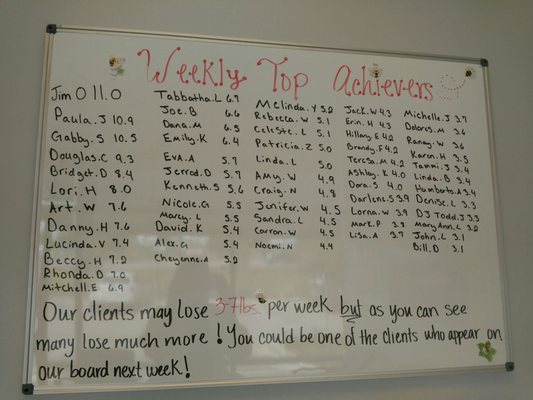 Weekly Top Achievers
Jim O 11.0
Paula.J 10.9
Gabby.S 10.5
Douglas.C 9.3
Bridget.D 8.4
Lori.H 8.0
Art.W 7.6
Danny.H 7.6
Lucinda.V 7.4
Beccy.H 7.2
Rhonda.D 7.0
Mitchell.E 6.9
Tabbatha.L 6.7
Joe.B 6.6
Dana.M 6.5
Emily.K 6.4
Eva.A 5.7
Jerrod.D 5.7
Kenneth.S 5.6
Nicole.G 5.5
Marcy.L 5.5
David.K 5.4
Alex.G 5.4
Cheyenne.A 5.2
Melinda.Y 5.2
Rebecca.W 5.1
Celeste.L 5.1
Patricia.Z 5.0
Linda.L 5.0
Amy.W 4.9
Craig.N 4.8
Jenifer.W 4.5
Sandra.L 4.5
Carron.W 4.5
Noemi.N 4.4
Jack.W 4.3
Erin.H 4.3
Hillary.E 4.2
Brandy.F 4.2
Teresa.M 4.2
Ashley.K 4.0
Dora.S 4.0
Darlene.S 3.9
Lorna.W 3.9
Mark.P 3.8
Lisa.A 3.7
Michelle.J 3.7
Dolores.M 3.6
Ranay.W 3.6
Karen.H 3.5
Tammi.J 3.4
Linda.B 3.4
Humberto.A 3.4
Denise.L 3.3
DJ Todd.J 3.3
MaryAnn.L 3.2
John.L 3.1
Bill.D 3.1
Our clients may lose 3-7lbs. per week but as you can see
many lose much more! You could be one of the clients who appear on
our board next week!